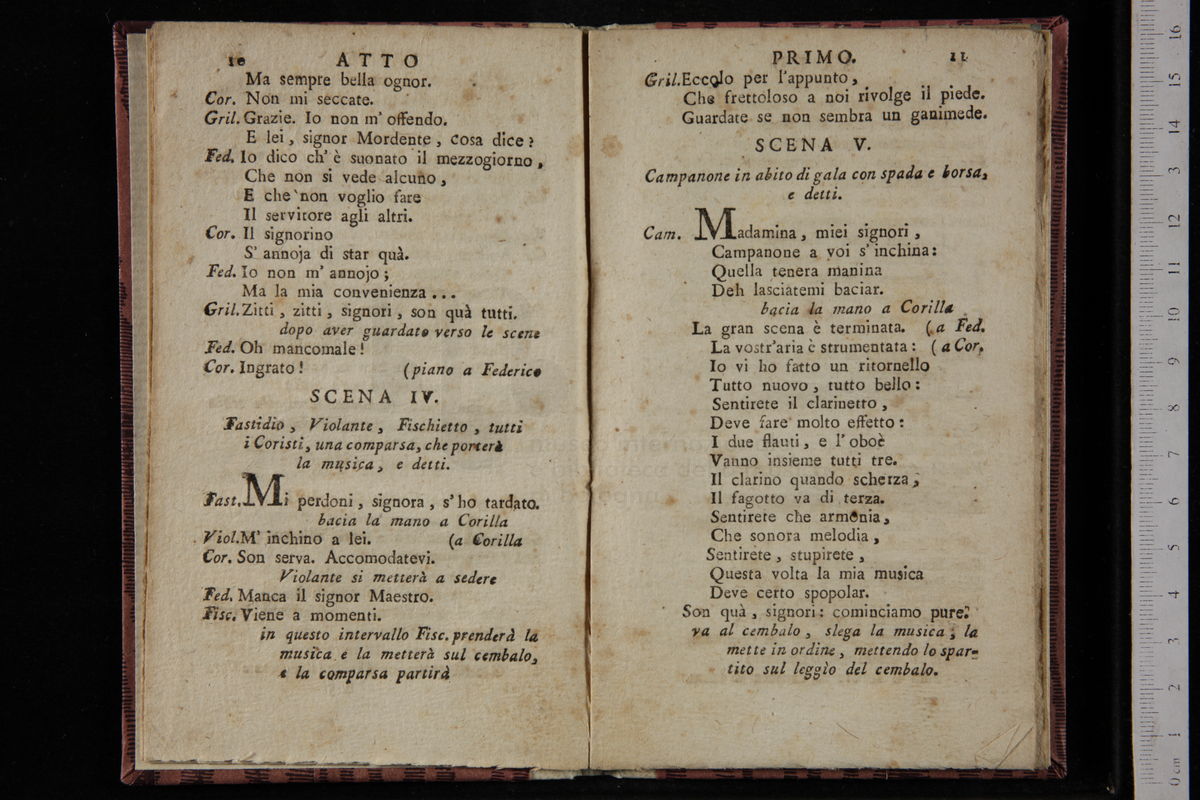 10 ATTO
Ma sempre bella ognor.
Cor. Non mi seccate.
Gril. Grazie. Io non m' offendo.
E lei, signor Mordente, cosa dice?
Fed. Io dico ch' è suonato il mezzogiorno,
Che non si vede alcuno,
E che non voglio fare
Il servitore agli altri.
Cor. Il signorino
S' annoja di star quà.
Fed. Io non m' annojo;
Ma la mia convenienza...
Gril. Zitti, zitti, signori, son quà tutti.
dopo aver guardato verso le scene
Fed. Oh mancomale!
Cor. Ingrato! (piano a Federico
SCENA IV.
Fastidio, Violante, Fischietto, tutti
i Coristi, una comparsa, che porterà
la musica, e detti.
Fast. Mi perdoni, signora, s' ho tardato.
bacia la mano a Corilla
Viol. M' inchino a lei. (a Corilla
Cor. Son serva. Accomodatevi.
Violante si metterà a sedere
Fed. Manca il signor Maestro.
Fisc. Viene a momenti.
in questo intervallo Fisc. prenderà la
musica e la metterà sul cembalo,
e la comparsa partirà
PRIMO. 11
Gril. Eccolo per l'appunto,
Che frettoloso a noi rivolge il piede.
Guardate se non sembra un ganimede.
SCENA V.
Campanone in abito di gala con spada e borsa,
e detti.
Cam. Madamina, miei signori,
Campanone a voi s'inchina:
Quella tenera manina
Deh lasciatemi baciar.
bacia la mano a Corilla
La gran scena è terminata. (a Fed.
La vostr'aria è strumentata: (a Cor.
Io vi ho fatto un ritornello
Tutto nuovo, tutto bello:
Sentirete il clarinetto,
Deve fare molto effetto:
I due flauti, e l'oboè
Vanno insieme tutti tre.
Il clarino quando scherza,
Il fagotto va di terza.
Sentirete che armonia,
Che sonora melodia,
Sentirete, stupirete,
Questa volta la mia musica
Deve certo spopolar.
Son quà, signori: cominciamo pure.
va al cembalo, slega la musica, la
mette in ordine, mettendo lo spar-
tito sul leggìo del cembalo.
0 cm 1 2 3 4 5 6 7 8 9 10 11 12 13 14 15 16